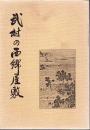 武村の西郷屋敷